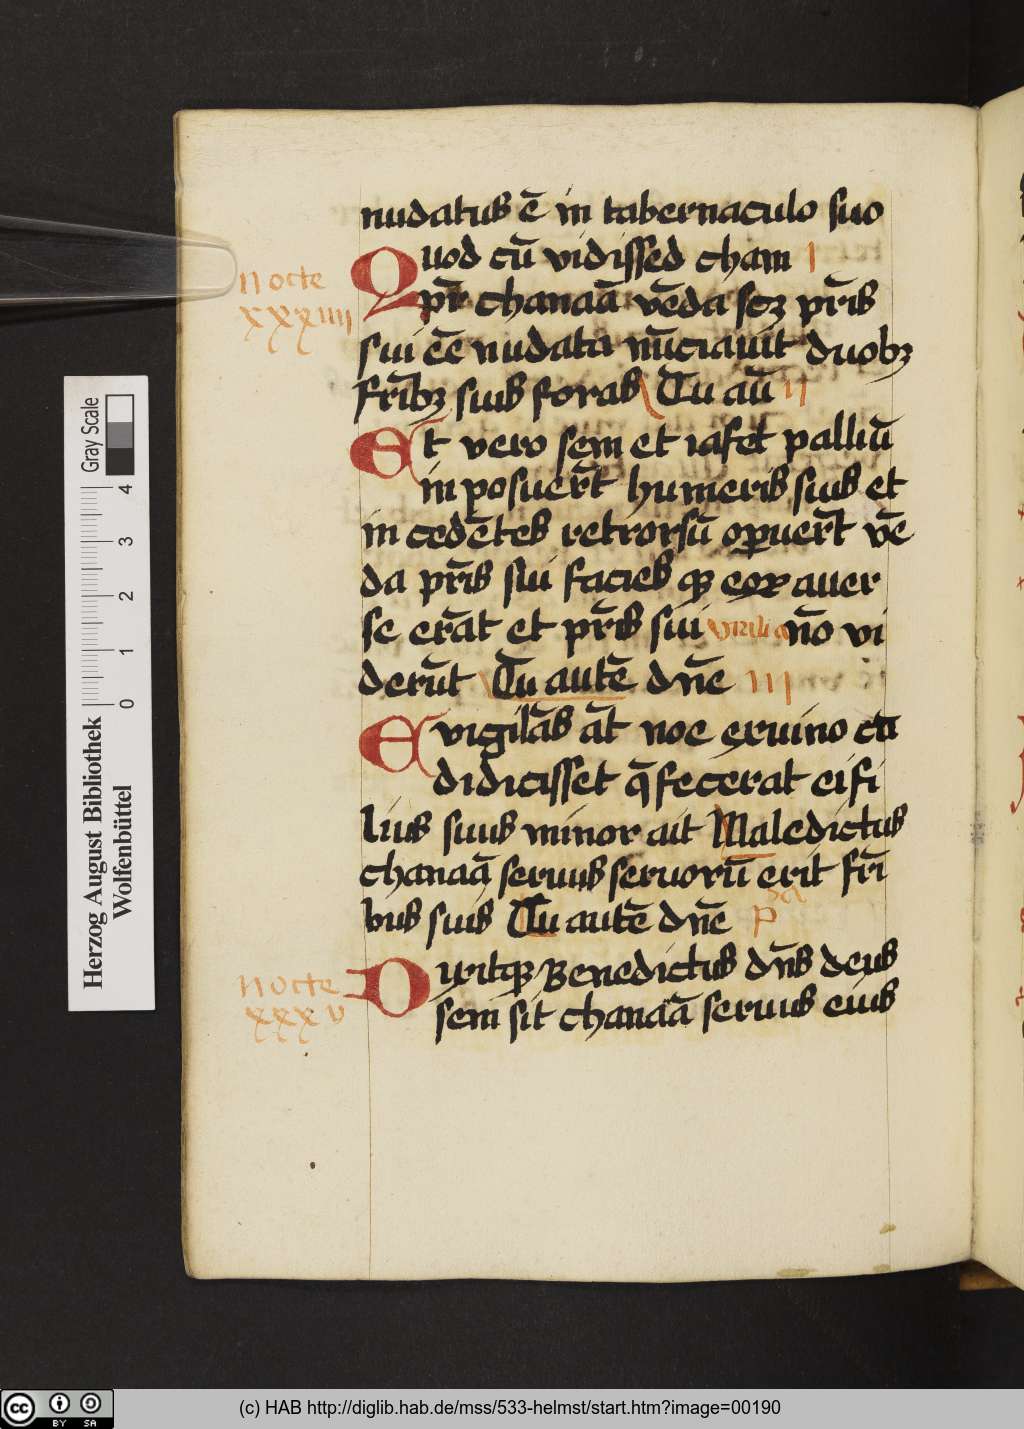 nudatus ē in tabernaculo suo
Quod cū vidissed cham I
Nocte
XXXIIII
pr̄ chanaā vēda scꝫ pr̄is
sui eē nudata nūciauit duobꝫ
fr̄ibꝫ suis foras Tu aū II
Et vero sem et iafet palliū
in posuer̄t humeris suis et
in cedētes retrorsū oꝑuer̄t vē
da pr̄is sui facies qꝫ eoꝝ auer
se er̄at et pr̄is sui virilia nō vi
derūt Tu autē dn̄e III
Evigilās at̄ noe exuino cū
didicisset q̄ fecerat ei fi
lius suus minor ait Maledictus
chanaā seruus seruorū erit fr̄i
bus suis Tu autē dn̄e
Nocte
XXXV
Dixitqꝫ Benedictus dn̄s deus
sem sit chanaā seruus eius
Herzog August Bibliothek
Wolfenbüttel
0 1 2 3 4
Gray Scale
cc BY SA
(c) HAB http://diglib.hab.de/mss/533-helmst/start.htm?image=00190